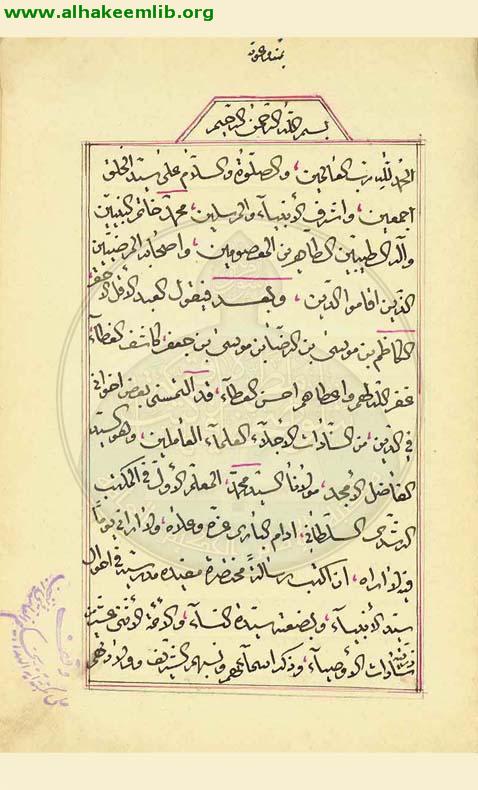 www.alhakeemlib.org
بسم اللّه الرحمن الرحيم
الحمد للّه رب العالمين، والصلوة والسلام على سيد الخلق
اجمعين، واشرف الأنبياء والمرسلين، محمد خاتم النبيين
وآله الطيبين الطاهرين المعصومين، واصحابه المرضيين
الذين اقاموا الدين، وبعد فيقول العبد الأقل الأحقر
الكاظم بن موسى بن الرضا بن موسى بن جعفر كاشف الغطاء
غفر اللّه لهم واعطاهم احسن العطاء، قد التمسنى بعض اخواني
في الدين، من السادات الأجلاء، العلماء العاملين، وهو السيد
الفاضل الأمجد، مولينا السيد محمد، المعلم الأول في المكتب
الرشدى السلطاني، ادام البارى عزه وعلاه، ولا اراني يوماً
فيه لا اراه، ان اكتب رسالة مختصرة مفيدة مدرسية في احوال
سيد الأنبياء، وبضعته سيدة النساء، والأئمة الأثنى عشر
سادات الأوصياء، وذكر اسمائهم ونسبهم الشريف وولادتهم